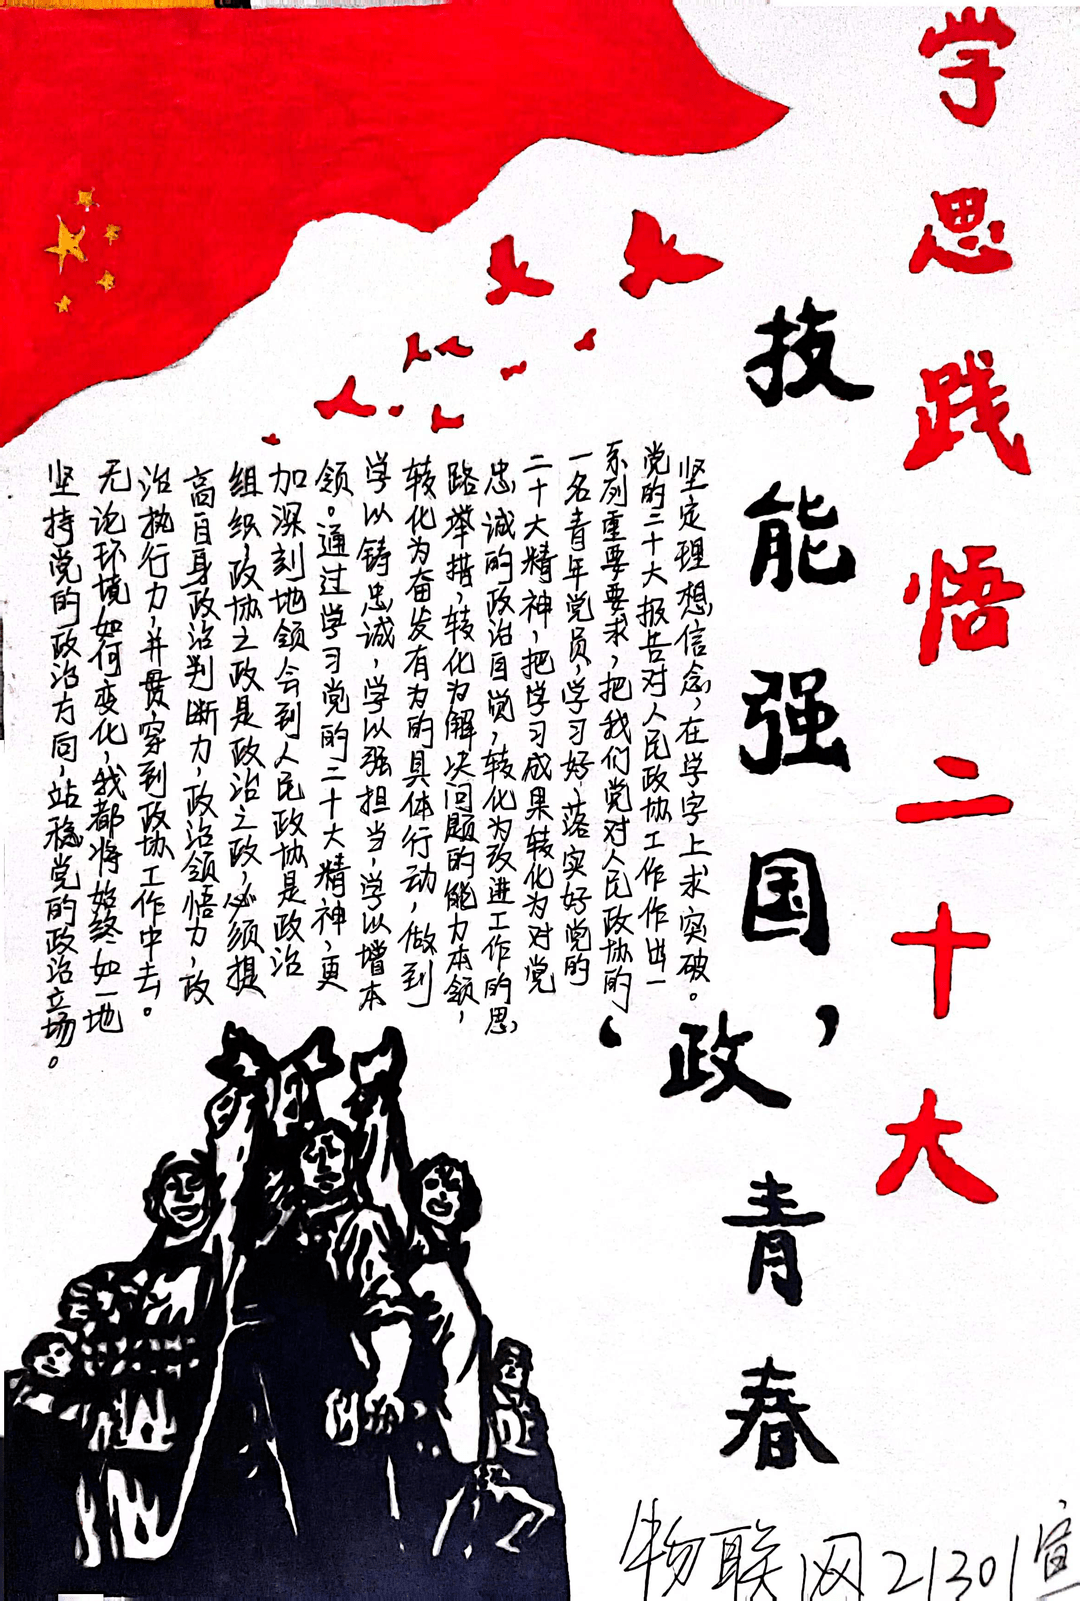 学思践悟二十大
技能强国，
‘政青春
坚定理想信念，在学字上求突破。
党的二十大报告对人民政协工作作出一
系列重要要求，把我们党对人民政协的
一名青年党员，学习好、落实好党的
二十大精神，把学习成果转化为对党
忠诚的政治自觉，转化为改进工作的思
路举措，转化为解决问题的能力本领，
转化为奋发有为的具体行动，做到
学以铸忠诚，学以强担当，学以增本
领。通过学习党的二十大精神，更
加深刻地领会到人民政协是政治
组织，政协之政是政治之政，必须提
高自身政治判断力，政治领悟力，政
治执行力，并贯穿到政协工作中去。
无论环境如何变化，我都将始终如一地
坚持党的政治方向，站稳党的政治立场。
物联网21301宣